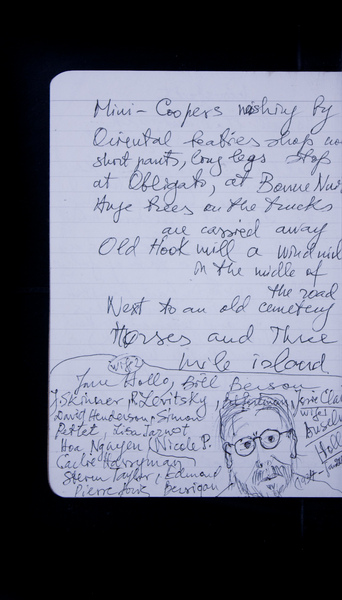 Mini-Coopers rushing by
Oriental teabries shop
short pants, long legs stop
at Obligato, at Bonne Nui
Huge trees on the trucks
are carried away
Old Hook mill a windmil
in the midle of
the road
Next to an old cemetery
Horses and Three
mile island
wife
Jane Hollo, Bill Berson
J. Skinner, R. Levitsky,
David Henderson, Simon
Pettet, Lisa Jarnot
Hoa Nguyen, Nicole P.
Carla Harryman
Steven Taylor, Edmund
Berrigan
wife
Ansel
Hollo